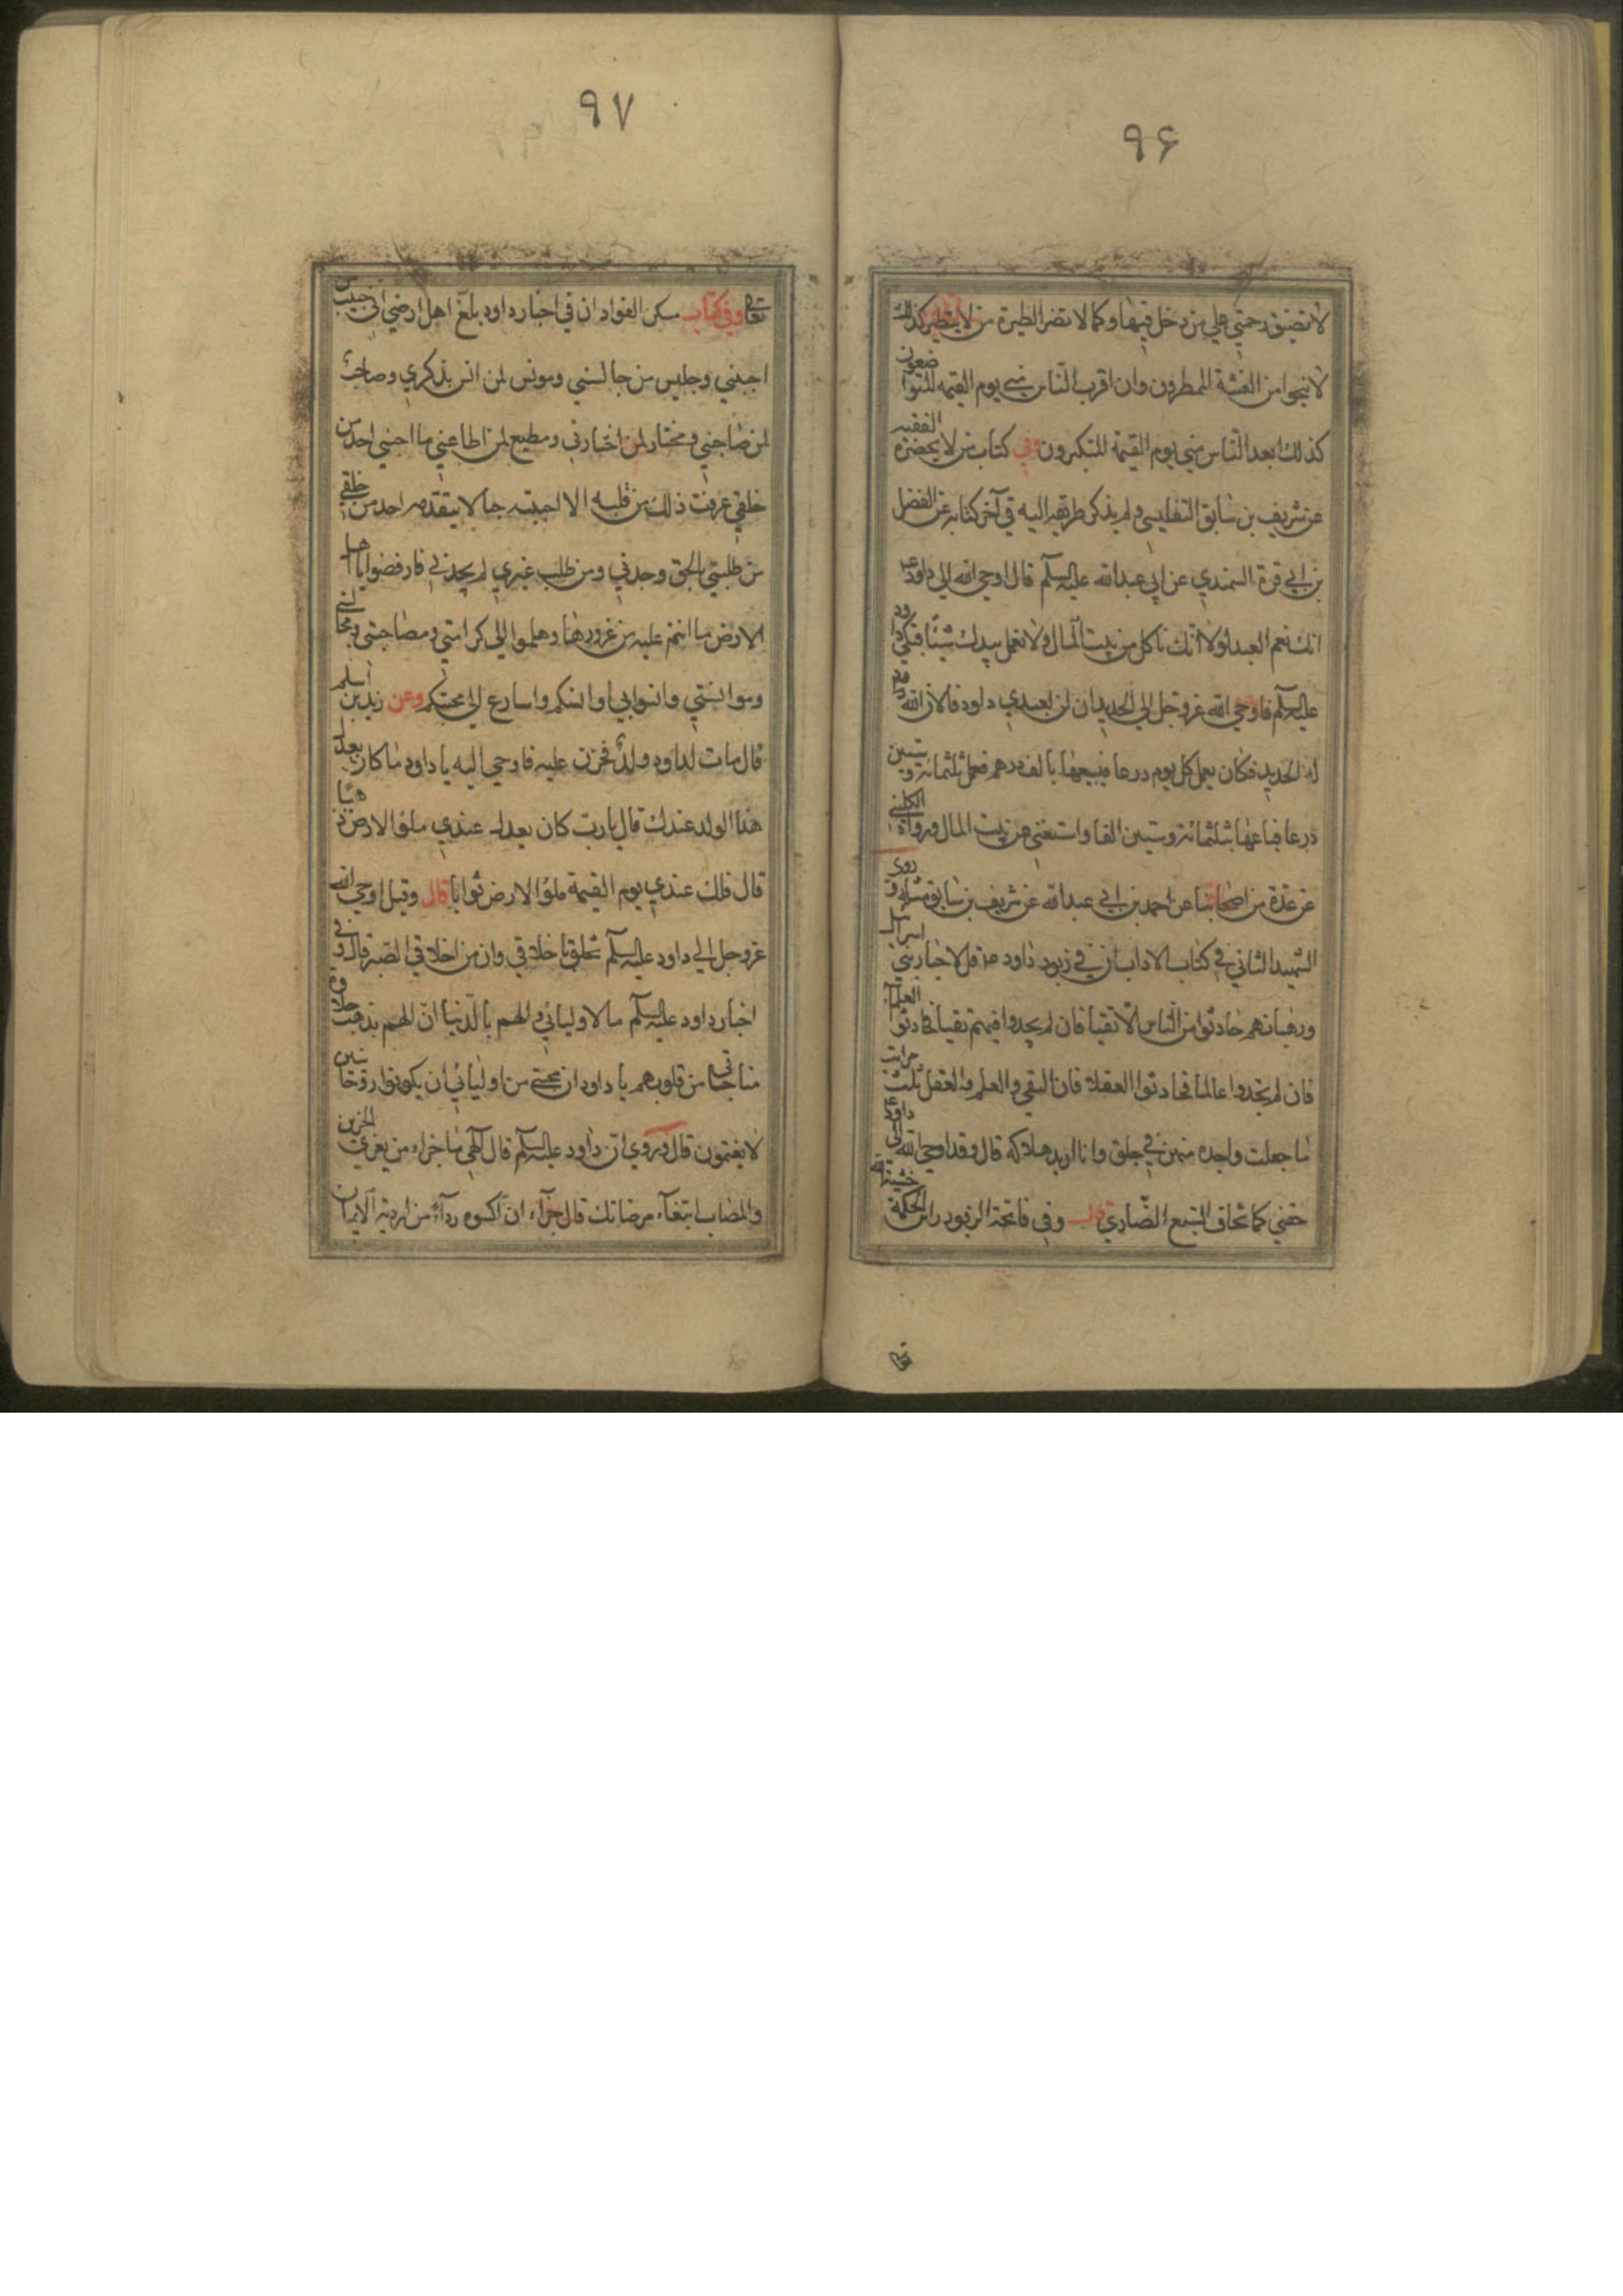 ۹۶
لا تضيق رحمتي علي من دخل فيها وكما لا تضر الطيرة من لا يتطير كذلك
لا ينجوا من الفتنة المتطيرون وان اقرب الناس مني يوم القيمة المتواضعون
كذلك ابعد الناس مني يوم القيمة المتكبرون وفي كتاب من لا يحضره الفقيه
عن شريف بن سابق التفليسي ولم يذكر طريقه اليه في آخر كتابه عن الفضل
بن ابي قرة السمندي عن ابي عبد الله عليه السلم قال اوحي الله الي داود ع
انك نعم العبد لولا انك تاكل من بيت المال ولا تعمل بيدك شيئا فبكي داود
عليه السلم فاوحي الله عز وجل الي الحديد ان لن لعبدي داود فالان الله
له الحديد فكان يعمل كل يوم درعا فيبيعها بالف درهم فعمل ثلثمائة وستين
درعا فباعها بثلثمائة وستين الفا واستغني عن بيت المال ورواه الكليني
عن عدة من اصحابنا عن احمد بن ابي عبد الله عن شريف بن سابق مثله وروي
الشهيد الثاني في كتاب الاداب ان في زبور داود ع قل لاحبار بني اسرائيل
ورهبانهم حادثوا من الناس الاتقيا فان لم يجدوا فيهم تقيا فحادثوا العلمآء
فان لم يجدوا عالما فحادثوا العقلاء فان التقي والعلم والعقل ثلث مراتب
ما جعلت واحدة منهن في خلق وانا اريد هلاكه قال وقد اوحي الله الي داود ع
خفني كما تخاف السبع الضاري قال وفي فاتحة الزبور راس الحكمة خشية الله
تعا
۹۷
تعالي وفي كتاب مسكن الفواد ان في اخبار داود بلغ اهل ارضي اني حبيب من
احبني وجليس من جالسني ومونس لمن انس بذكري وصاحب
لمن صاحبني ومختار لمن اختارني ومطيع لمن اطاعني ما احبني احد من
خلقي عرفت ذلك من قلبه الا احببته حبا لا يتقدمه احد من خلقي
من طلبني بالحق وجدني ومن طلب غيري لم يجدني فارفضوا يا اهل
الارض ما انتم عليه من غرورها وهلموا الي كرامتي ومصاحبتي ومجالستي
وموانستي وانسوا بي اوانسكم واسارع الي محبتكم وعن زيد بن اسلم
قال مات لداود ولد فحزن عليه فاوحي اليه يا داود ما كان يعدل
هذا الولد عندك قال يا رب كان يعدل عندي ملؤ الارض ذهبا
قال فلك عندي يوم القيمة ملؤ الارض ثوابا قال وقيل اوحي الله
عز وجل الي داود عليه السلم تخلق باخلاقي وان من اخلاقي الصبر قال وفي
اخبار داود عليه السلم ما لاوليائي والهم بالدنيا ان الهم يذهب حلاوة
مناجاتي من قلوبهم يا داود ان محبتي من اوليائي ان يكونوا روحانيين
لا يغتمون قال وروي ان داود عليه السلم قال الهي ما جزاء من يعزي الحزين
والمصاب ابتغآء مرضاتك قال جزآءه ان اكسوه ردآء من اردية الايمان